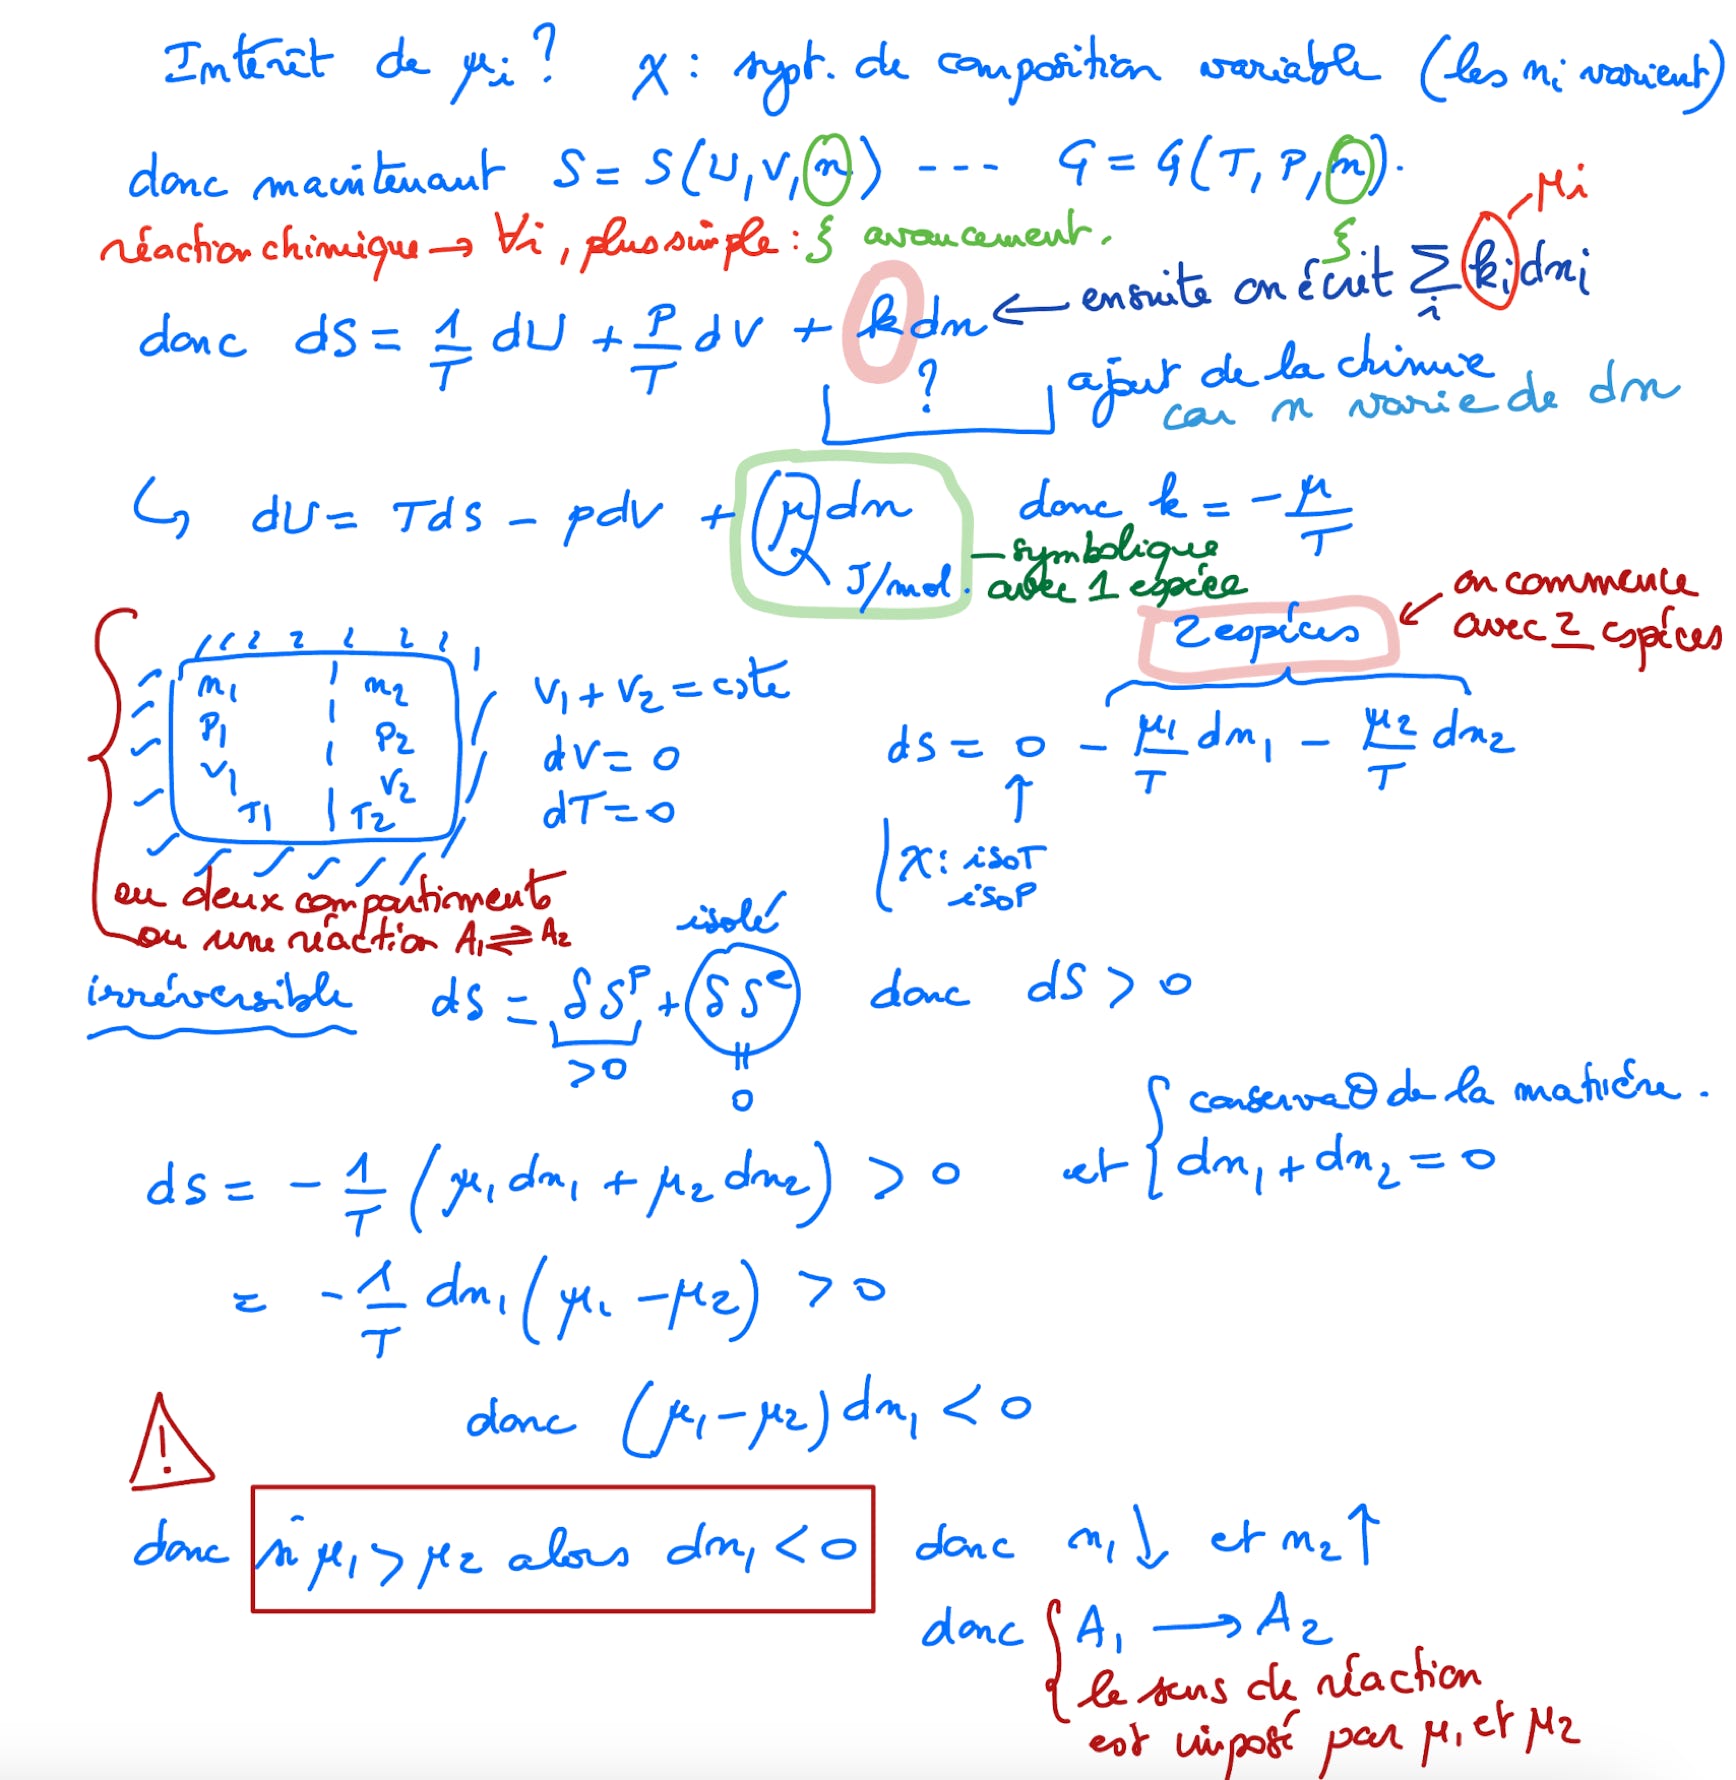 Intérêt de μi ? X : syst. de composition variable (les ni varient)
donc maintenant S = S(U, V, n) --- G = G(T, P, n).
réaction chimique → ∀i, plus simple : ξ avancement. ξ
μi
donc dS = 1/T dU + P/T dV + k dn ← ensuite on écrit Σi ki dni
?
ajout de la chimie
car n varie de dn
↳ dU = TdS - pdV + μ dn donc k = - μ/T
J/mol. — symbolique
avec 1 espèce
2 espèces ← on commence
avec 2 espèces
n1 n2
P1 P2
V1 V2
T1 T2
V1 + V2 = cste
dV = 0
dT = 0
dS = 0 - μ1/T dn1 - μ2/T dn2
↑
X : isoT
isoP
ou deux compartiments
ou une réaction A1 ⇌ A2
isolé
irréversible dS = δS^p + δS^e donc dS > 0
>0 = 0
et { conservaΘ de la matière.
dn1 + dn2 = 0
dS = - 1/T (μ1 dn1 + μ2 dn2) > 0
= - 1/T dn1 (μ1 - μ2) > 0
donc (μ1 - μ2) dn1 < 0
!
donc si μ1 > μ2 alors dn1 < 0 donc n1 ↓ et n2 ↑
donc { A1 → A2
le sens de réaction
est imposé par μ1 et μ2